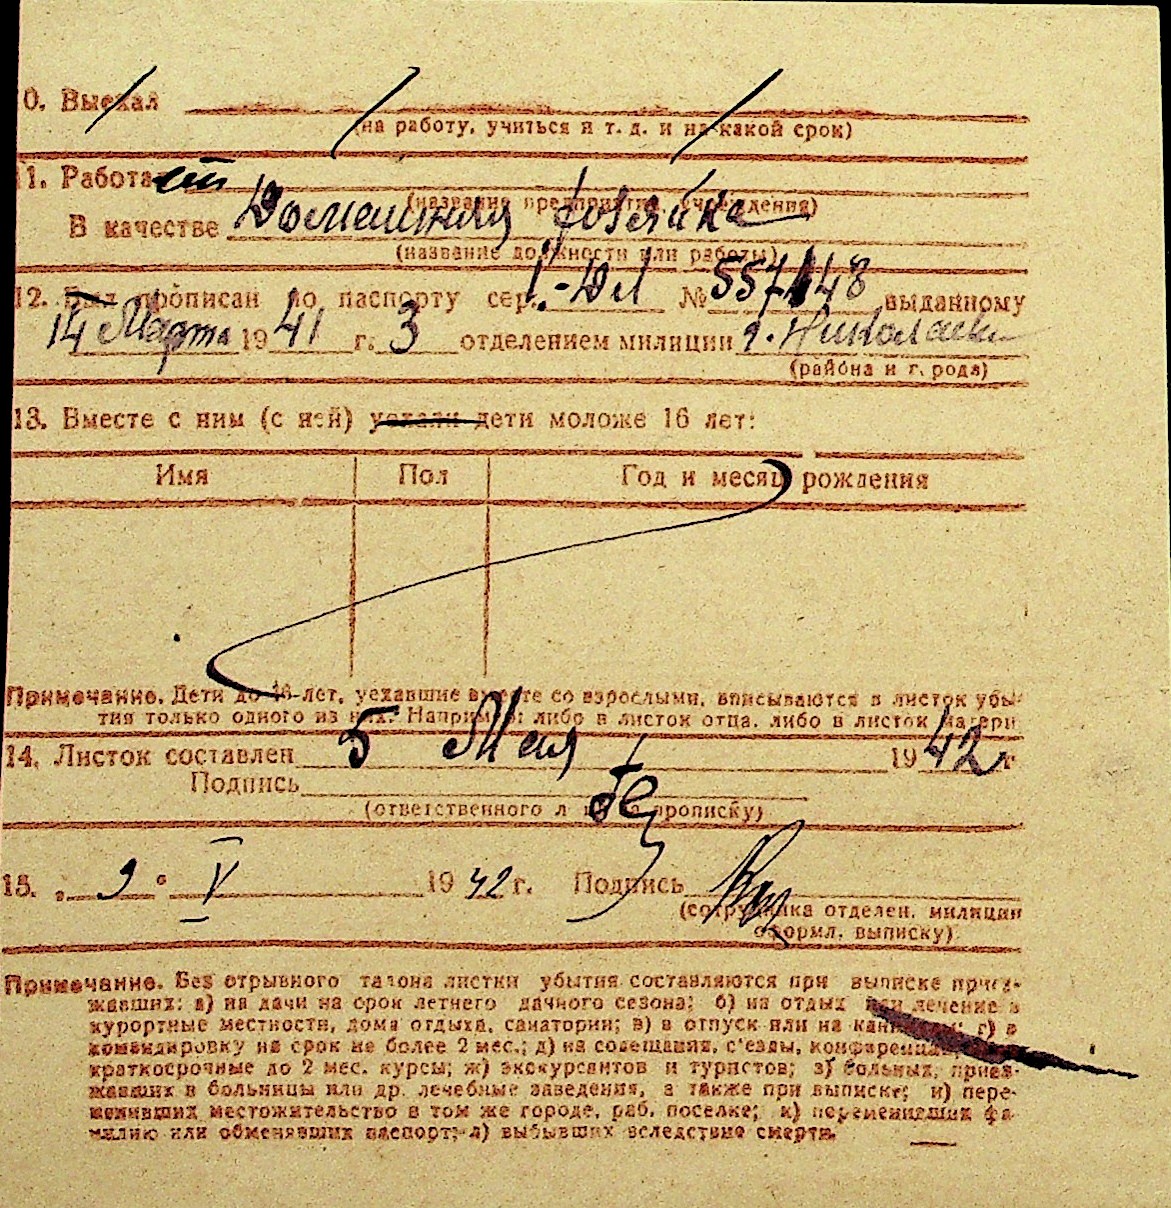 0. Выехал
(на работу, учиться и т. д. и на какой срок)
11. Работает
(название предприятия, учреждения)
В качестве Домашняя хозяйка
(название должности или работы)
12. Был прописан по паспорту сер. № 557148 выданному
14 Марта 1941 г. 3 отделением милиции г. Николаева
(района и города)
13. Вместе с ним (с ней) уехали дети моложе 16 лет:
Имя Пол Год и месяц рождения
Примечание. Дети до 16 лет, уехавшие вместе со взрослыми, вписываются в листок убы-
тия только одного из них. Например: либо в листок отца, либо в листок матери
14. Листок составлен 5 Мая 1942 г
Подпись
(ответственного л за прописку)
15. „ 9 " V 1942 г. Подпись
(сотрудника отделен. милиции
оформл. выписку)
Примечание. Без отрывного талона листки убытия составляются при выписке приез-
жавших: а) на дачи на срок летнего дачного сезона; б) на отдых или лечение в
курортные местности, дома отдыха, санатории; в) в отпуск или на каникулы; г) в
командировку на срок не более 2 мес.; д) на совещания, с'езды, конференции;
краткосрочные до 2 мес. курсы; ж) экскурсантов и туристов; з) больных, приез-
жавших в больницы или др. лечебные заведения, а также при выписке; и) пере-
менивших местожительство в том же городе, раб. поселке; к) переменивших фа-
милию или обменявших паспорт; л) выбывших вследствие смерти.